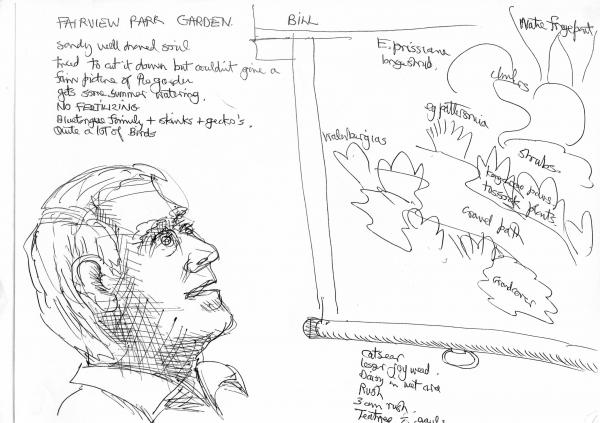 FAIRVIEW PARK GARDEN.
sandy well drained soil
tried to cut it down but couldn't give a
firm picture of the garden
gets some summer watering.
NO FERTILIZING
Bluetongue family + skinks + gecko's.
Quite a lot of Birds
BILL
E. prissiana
long shrub.
Native frangipani
climbers
eg pattersonia
walenburgias
shrubs.
kangaroo paws
tussock plants
Gravel path
Groundcover
catsear
lesser joy weed.
Daisy in wet area
Rush
3 cm rush.
Teatree